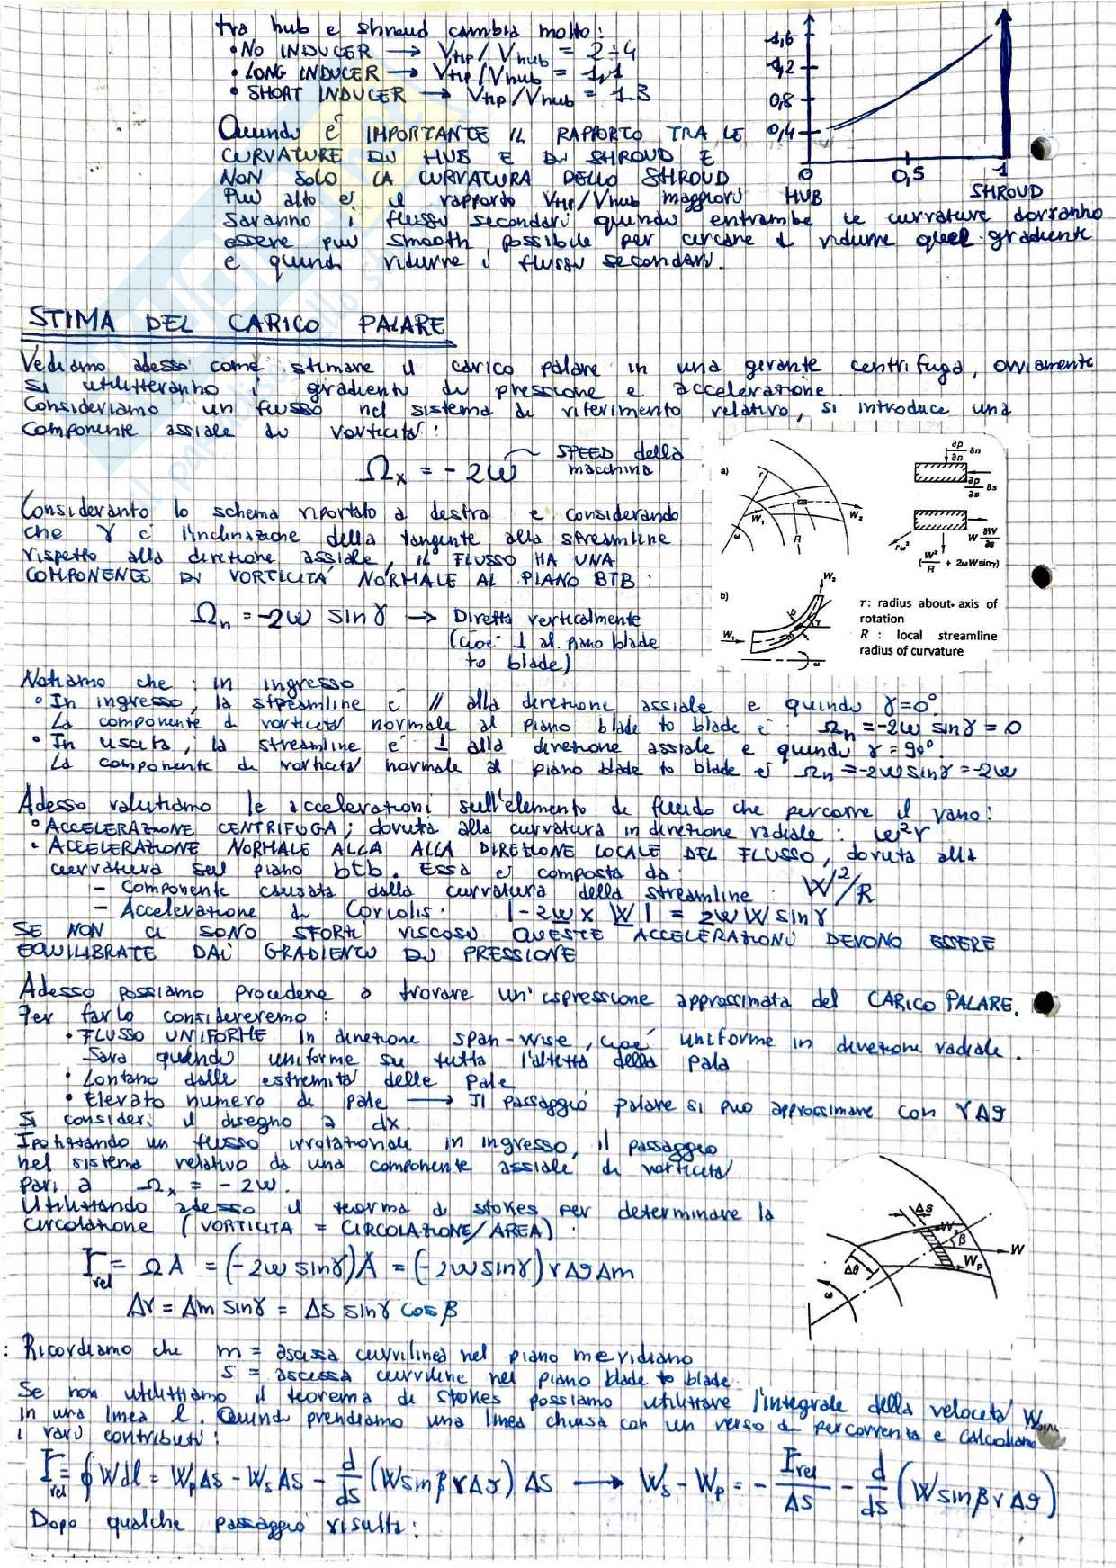 tra hub e shroud cambia molto:
• NO INDUCER → Vtip/Vhub = 2÷4
• LONG INDUCER → Vtip/Vhub = 1,1
• SHORT INDUCER → Vtip/Vhub = 1.3
Quindi è IMPORTANTE IL RAPPORTO TRA LE
CURVATURE DI HUB E DI SHROUD E
NON SOLO LA CURVATURA DELLO SHROUD
Più alto è il rapporto Vtip/Vhub maggiori
saranno i flussi secondari quindi entrambe le curvature dovranno
essere più smooth possibile per cercare di ridurre quel gradiente
e quindi ridurre i flussi secondari.
1,6
1,2
0,8
0,4
0
0,5
1
HUB
SHROUD
STIMA DEL CARICO PALARE
Vediamo adesso come stimare il carico palare in una girante centrifuga, ovviamente
si utilizzeranno i gradienti di pressione e accelerazione.
Consideriamo un flusso nel sistema di riferimento relativo, si introduce una
componente assiale di vorticità:
Ωx = -2ω
SPEED della
macchina
Considerando lo schema riportato a destra e considerando
che γ è l'inclinazione della tangente alla streamline
rispetto alla direzione assiale, IL FLUSSO HA UNA
COMPONENTE DI VORTICITA' NORMALE AL PIANO BTB:
Ωn = -2ω sinγ → Diretta verticalmente
(cioè ⊥ al piano blade
to blade)
a)
b)
r: radius about axis of
rotation
R : local streamline
radius of curvature
Notiamo che: in ingresso
• In ingresso, la streamline è // alla direzione assiale e quindi γ=0°
La componente di vorticità normale al piano blade to blade è: Ωn = -2ω sinγ = 0
• In uscita, la streamline è ⊥ alla direzione assiale e quindi γ = 90°
La componente di vorticità normale al piano blade to blade è Ωn = -2ω sinγ = -2ω
Adesso valutiamo le accelerazioni sull'elemento di fluido che percorre il vano:
• ACCELERAZIONE CENTRIFUGA; dovuta alla curvatura in direzione radiale: ω²r
• ACCELERAZIONE NORMALE ALLA ALLA DIREZIONE LOCALE DEL FLUSSO, dovuta alla
curvatura sul piano btb. Essa è composta da:
- Componente causata dalla curvatura della streamline: W²/R
- Accelerazione di Coriolis: |-2ω x W| = 2ωW sinγ
SE NON CI SONO SFORZI VISCOSI QUESTE ACCELERAZIONI DEVONO ESSERE
EQUILIBRATE DAI GRADIENTI DI PRESSIONE
Adesso possiamo procedere a trovare un'espressione approssimata del CARICO PALARE.
Per farlo considereremo:
• FLUSSO UNIFORME in direzione span-wise, cioè uniforme in direzione radiale.
Sarà quindi uniforme su tutta l'altezza della pala
• Lontano dalle estremità delle pale
• Elevato numero di pale → Il passaggio palare si può approssimare con rΔϑ
Si consideri il disegno a dx.
Ipotizzando un flusso irrotazionale in ingresso, il passaggio
nel sistema relativo dà una componente assiale di vorticità
pari a Ωx = -2ω.
Utilizzando adesso il teorema di stokes per determinare la
circolazione (VORTICITA = CIRCOLAZIONE/AREA):
Γrel = ΩA = (-2ω sinγ)A = (-2ω sinγ) rΔϑ Δm
Δr = Δm sinγ = Δs sinγ cosβ
: Ricordiamo che m = ascissa curvilinea nel piano meridiano
s = ascissa curvilinea nel piano blade to blade
Se non utilizziamo il teorema di stokes possiamo utilizzare l'integrale della velocità W
in una linea l. Quindi prendiamo una linea chiusa con un verso di percorrenza e calcoliamo
i vari contributi:
Γrel = ∮Wdl = WpΔs - WsΔs - d/ds (W sinβ rΔϑ) Δs → Ws - Wp = - Γrel/Δs - d/ds (W sinβ rΔϑ)
Dopo qualche passaggio risulta: